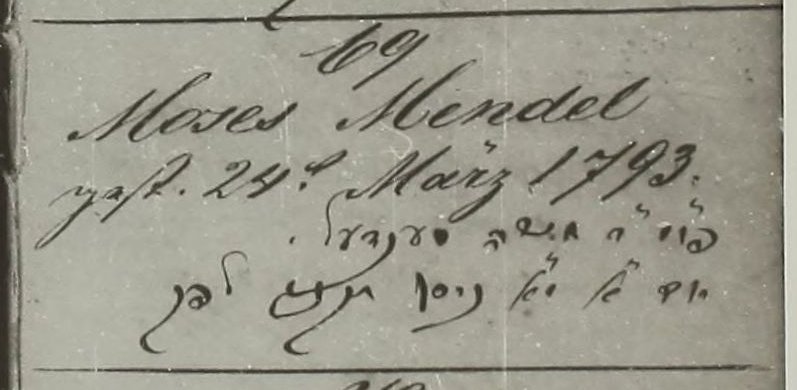 69
Moses Mendel
gest. 24t März 1793.
ר׳ משה מענדל .
יום א׳ י״א ניסן תקנ״ג לפ״ק